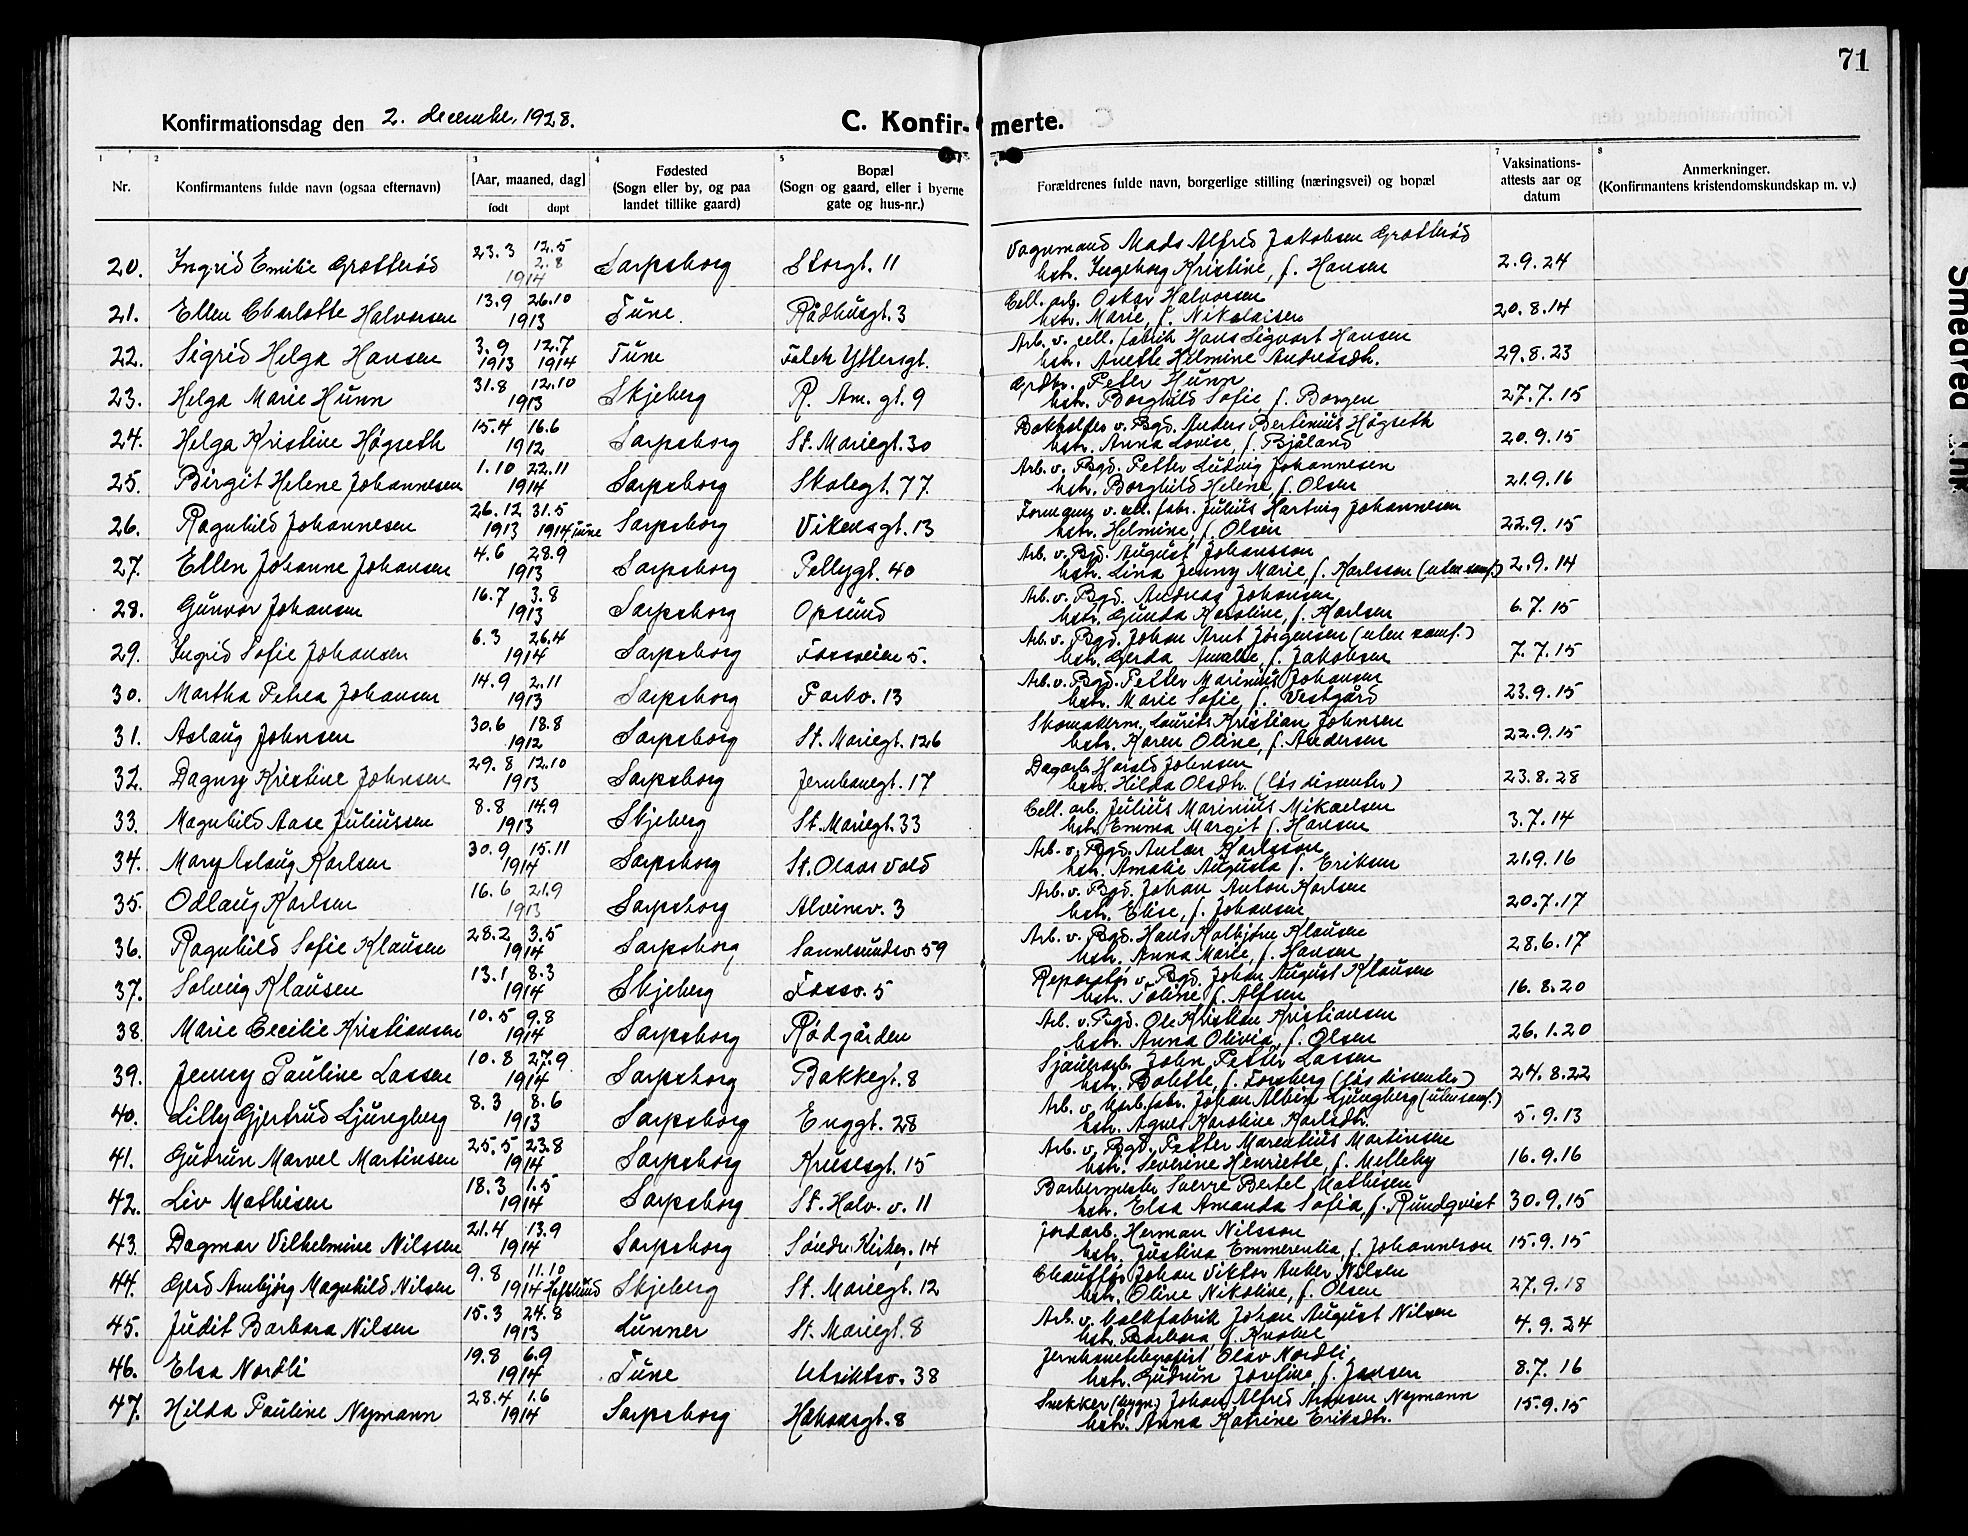 71
Konfirmationsdag den 2. december, 1928.
C. Konfir- merte.
1 2 3 4 5 7 8
Nr.
Konfirmantens fulde navn (ogsaa efternavn)
[Aar, maaned, dag]
født døpt
Fødested
(Sogn eller by, og paa
landet tillike gaard)
Bopæl
(Sogn og gaard, eller i byerne
gate og hus-nr.)
Forældrenes fulde navn, borgerlige stilling (næringsvei) og bopæl
Vaksinations-
attests aar og
datum
Anmerkninger.
(Konfirmantens kristendomskundskap m. v.)
20. Ingrid Emilie Grøtterød 23.3 12.5 2.8 1914 Sarpsborg Storgt. 11 Vognmand Mads Alfred Jakobsen Grøtterød
hstr. Ingeborg Kristine, f. Hansen 2.9.24
21. Ellen Charlotte Halvorsen 13.9 26.10 1913 Tune Rådhusgt. 3 Cell. arb. Oskar Halvorsen
hstr. Marie, f. Nikolaisen 20.8.14
22. Sigrid Helga Hansen 3.9 1913 12.7 1914 Tune Falch Yttersgt. Arb. v. cell. fabrik Hans Sigvart Hansen
hstr. Anette Helmine Andreasdtr. 29.8.23
23. Helga Marie Hunn 31.8 12.10 1913 Skjeberg R. Am. gt. 9 Grdbr. Peter Hunn
hstr. Borghild Sofie f. Borgen 27.7.15
24. Helga Kristine Høgseth 15.4 16.6 1912 Sarpsborg St. Mariegt. 30 Bokholder v. Bgd. Anders Bertinius Høgseth
hstr. Anna Lovise, f. Bjåland 20.9.15
25. Birgit Helene Johannesen 1.10 22.11 1914 Sarpsborg Skolegt. 77. Arb. v. Bgd. Petter Ludvig Johannesen
hstr. Borghild Helene, f. Olsen 21.9.16
26. Ragnhild Johannesen 26.12 1913 31.5 1914 Tune Sarpsborg Vikensgt. 13 Formann v. cell. fabr. Julius Hartvig Johannesen
hstr. Helmine, f. Olsen 22.9.15
27. Ellen Johanne Johansen 4.6 28.9 1913 Sarpsborg Pellygt. 40 Arb. v. Bgd. August Johansson
hstr. Lina Jenny Marie, f. Karlsson (uten samf.) 2.9.14
28. Gunvor Johansen 16.7 3.8 1913 Sarpsborg Opsund Arb. v. Bgd. Andreas Johansen
hstr. Gunda Karoline, f. Karlsen 6.7.15
29. Ingrid Sofie Johansen 6.3 26.4 1914 Sarpsborg Fossveien 5. Arb. v. Bgd. Johan Arnt Jørgensen (uten samf.)
hstr. Gerda Amalie, f. Jakobsen 7.7.15
30. Martha Petrea Johansen 14.9 2.11 1913 Sarpsborg Parkv. 13 Arb. v. Bgd. Petter Marinius Johansen
hstr. Marie Sofie, f. Vestgård 23.9.15
31. Aslaug Johnsen 30.6 18.8 1912 Sarpsborg St. Mariegt. 126 Skomakerm. Laurits Kristian Johnsen
hstr. Karen Oline, f. Andersen 22.9.15
32. Dagny Kristine Johnsen 29.8 12.10 1913 Sarpsborg Jernbanegt. 17 Dagarb. Harald Johnsen
hstr. Hilda Olsdtr. (løs dissenter) 23.8.28
33. Magnhild Aase Juliussen 8.8 14.9 1913 Skjeberg St. Mariegt. 33 Cell. arb. Julius Marinius Mikaelsen
hstr. Emma Margit f. Hansen 3.7.14
34. Mary Aslaug Karlsen 30.9 15.11 1914 Sarpsborg St. Olavs Vold Arb. v. Bgd. Anton Karlsson
hstr. Amalie Augusta f. Eriksen 21.9.16
35. Odlaug Karlsen 16.6 21.9 1913 Sarpsborg Alveimv. 3 Arb. v. Bgd. Johan Anton Karlsen
hstr. Elise, f. Johansen 20.7.17
36. Ragnhild Sofie Klausen 28.2 3.5 1914 Sarpsborg Sannesundsv. 59 Arb. v. Bgd. Hans Kolbjørn Klausen
hstr. Anna Marie, f. Hansen 28.6.17
37. Solveig Klausen 13.1 8.3 1914 Skjeberg Fossv. 5 Reparatør v. Bgd. Johan August Klausen
hstr. Toline f. Alfsen 16.8.20
38. Marie Cecilie Kristiansen 10.5 9.8 1914 Sarpsborg Rødgården Arb. v. Bgd. Ole Kristian Kristiansen
hstr. Anna Olivia, f. Olsen 26.1.20
39. Jenny Pauline Lassen 10.8 27.9 1914 Sarpsborg Bakkegt. 8 Sjauerarb. John Petter Lassen
hstr. Bolette, f. Forsberg (løs dissenter) 24.8.22
40. Lilly Gjertrud Ljungberg 8.3 8.6 1913 Sarpsborg Enggt. 28 Arb. v. karb. fabr. Johan Albin Ljungberg (uten samf.)
hstr. Agnes Karoline Karlsdtr. 5.9.13
41. Gudrun Marvel Martinsen 25.5 23.8 1914 Sarpsborg Krusesgt. 15 Arb. v. Bgd. Petter Marentius Martinsen
hstr. Severine Henriette, f. Melleby 16.9.16
42. Liv Mathisen 18.3 1.5 1914 Sarpsborg St. Halv. v. 11 Barbermester Sverre Bertel Mathisen
hstr. Elsa Amanda Sofia, f. Rundqvist 30.9.15
43. Dagmar Vilhelmine Nilssen 21.4 13.9 1914 Sarpsborg Søndre Kirkeg. 14 Jordarb. Herman Nilsson
hstr. Justina Emmerentia, f. Johanneson 15.9.15
44. Gerd Arnbjørg Magnhild Nilsen 9.8 11.10 1914 Hafslund Skjeberg St. Mariegt. 12 Chauffør Johan Viktor Anker Nilsen
hstr. Oline Nikoline, f. Olsen 27.9.18
45. Judit Barbara Nilsen 15.3 24.8 1913 Lunner St. Mariegt. 8 Arb. v. kalkfabrik Johan August Nilsen
hstr. Barbara f. Knobel 4.9.24
46. Elsa Nordli 19.8 6.9 1914 Tune Utsiktsv. 38 Jernbanetelegrafist Olav Nordli
hstr. Gudrun Josefine, f. Jensen 8.7.16
47. Hilda Pauline Nymann 28.4 1.6 1914 Sarpsborg Håkonsgt. 8 Snekker (bygn.) Johan Alfred Aronsen Nymann
hstr. Anna Katrine Eriksdtr. 15.9.15